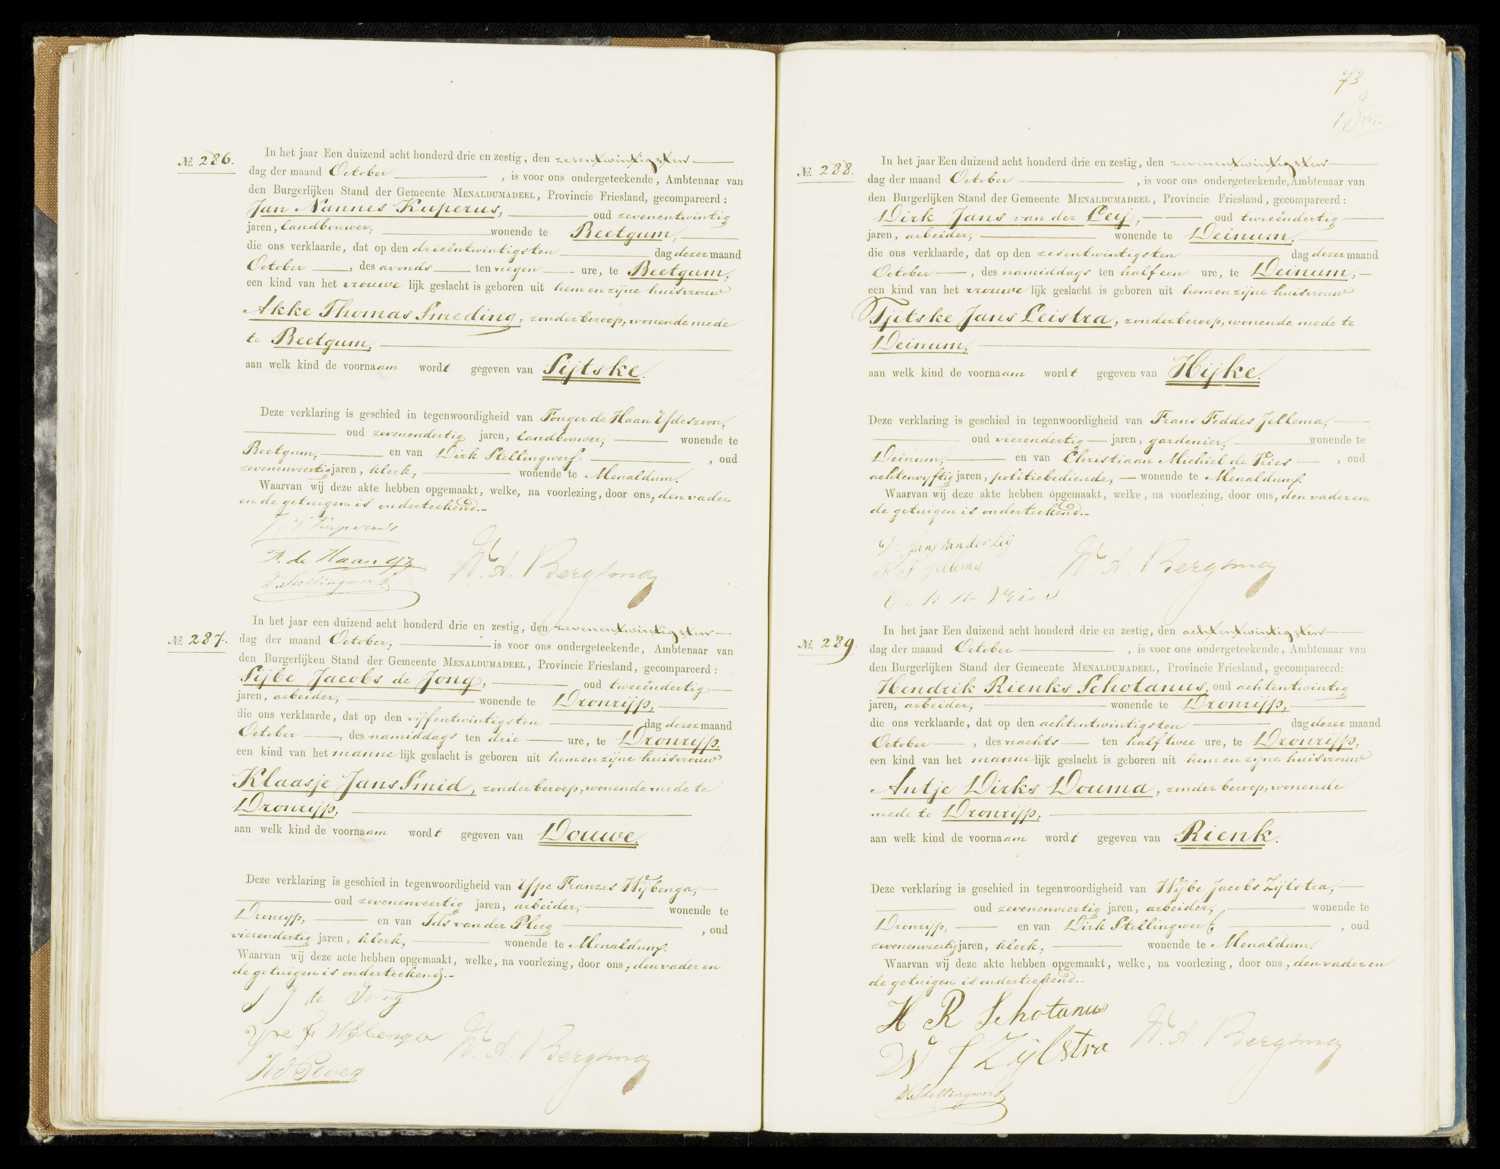 № 286.
In het jaar Een duizend acht honderd drie en zestig, den zesentwintigsten
dag der maand October, is voor ons ondergeteekende, Ambtenaar van
den Burgerlijken Stand der Gemeente MENALDUMADEEL, Provincie Friesland, gecompareerd:
Jan Nannes Kuperus, oud zevenentwintig
jaren, landbouwer, wonende te Beetgum,
die ons verklaarde, dat op den drieëntwintigsten dag dezer maand
October, des avonds ten negen ure, te Beetgum,
een kind van het vrouwelijk geslacht is geboren uit hem en zijne huisvrouw
Akke Thomas Smeding, zonder beroep, wonende mede
te Beetgum,
aan welk kind de voornaam wordt gegeven van Sijtske.
Deze verklaring is geschied in tegenwoordigheid van Fonger de Haan IJdeszoon,
oud zevenendertig jaren, landbouwer, wonende te
Beetgum, en van Dirk Stellingwerf, oud
zevenenveertig jaren, klerk, wonende te Menaldum.
Waarvan wij deze akte hebben opgemaakt, welke, na voorlezing, door ons, den vader
en de getuigen is onderteekend.
J N Kuperus
F. de Haan Yz
D Stellingwerf
W. A. Bergsma
№ 287.
In het jaar een duizend acht honderd drie en zestig, den zevenentwintigsten
dag der maand October, is voor ons ondergeteekende, Ambtenaar van
den Burgerlijken Stand der Gemeente MENALDUMADEEL, Provincie Friesland, gecompareerd:
Sijbe Jacobs de Jong, oud tweeëndertig
jaren, arbeider, wonende te Dronrijp,
die ons verklaarde, dat op den vijfentwintigsten dag dezer maand
October, des namiddags ten drie ure, te Dronrijp,
een kind van het mannelijk geslacht is geboren uit hem en zijne huisvrouw
Klaasje Jans Smid, zonder beroep, wonende mede te
Dronrijp,
aan welk kind de voornaam wordt gegeven van Douwe.
Deze verklaring is geschied in tegenwoordigheid van Ype Franzes Wijbenga,
oud zevenenveertig jaren, arbeider, wonende te
Dronrijp, en van Ids van der Ploeg, oud
vierendertig jaren, klerk, wonende te Menaldum.
Waarvan wij deze acte hebben opgemaakt, welke, na voorlezing, door ons, den vader en
de getuigen is onderteekend.
S J de Jong
Ype F Wybenga
W. A. Bergsma
73
№ 288.
In het jaar Een duizend acht honderd drie en zestig, den zevenentwintigsten
dag der maand October, is voor ons ondergeteekende, Ambtenaar van
den Burgerlijken Stand der Gemeente MENALDUMADEEL, Provincie Friesland, gecompareerd:
Dirk Jans van der Leij, oud tweeëndertig
jaren, arbeider, wonende te Deinum,
die ons verklaarde, dat op den zesentwintigsten dag dezer maand
October, des namiddags ten half een ure, te Deinum,
een kind van het vrouwelijk geslacht is geboren uit hem en zijne huisvrouw
Tjitske Jans Leistra, zonder beroep, wonende mede te
Deinum,
aan welk kind de voornaam wordt gegeven van Hijke.
Deze verklaring is geschied in tegenwoordigheid van Frans Feddes Jellema,
oud vierendertig jaren, gardenier, wonende te
Deinum, en van Christiaan Michiel de Vries, oud
achtenvyftig jaren, politiebediende, wonende te Menaldum.
Waarvan wij deze akte hebben opgemaakt, welke, na voorlezing, door ons, den vader en
de getuigen is onderteekend.
D Jans van der Leij
W. A. Bergsma
№ 289.
In het jaar Een duizend acht honderd drie en zestig, den achtentwintigsten
dag der maand October, is voor ons ondergeteekende, Ambtenaar van
den Burgerlijken Stand der Gemeente MENALDUMADEEL, Provincie Friesland, gecompareerd:
Hendrik Rienks Schotanus, oud achtentwintig
jaren, arbeider, wonende te Dronrijp,
die ons verklaarde, dat op den achtentwintigsten dag dezer maand
October, des nachts ten half twee ure, te Dronrijp,
een kind van het mannelijk geslacht is geboren uit hem en zijne huisvrouw
Antje Dirks Douma, zonder beroep, wonende
mede te Dronrijp,
aan welk kind de voornaam wordt gegeven van Rienk.
Deze verklaring is geschied in tegenwoordigheid van Wijbe Jacobs Zijlstra,
oud zevenenveertig jaren, arbeider, wonende te
Dronrijp, en van Dirk Stellingwerf, oud
zevenenveertig jaren, klerk, wonende te Menaldum.
Waarvan wij deze akte hebben opgemaakt, welke, na voorlezing, door ons, den vader en
de getuigen is onderteekend.
H R Schotanus
W J Zylstra
D Stellingwerf
W. A. Bergsma